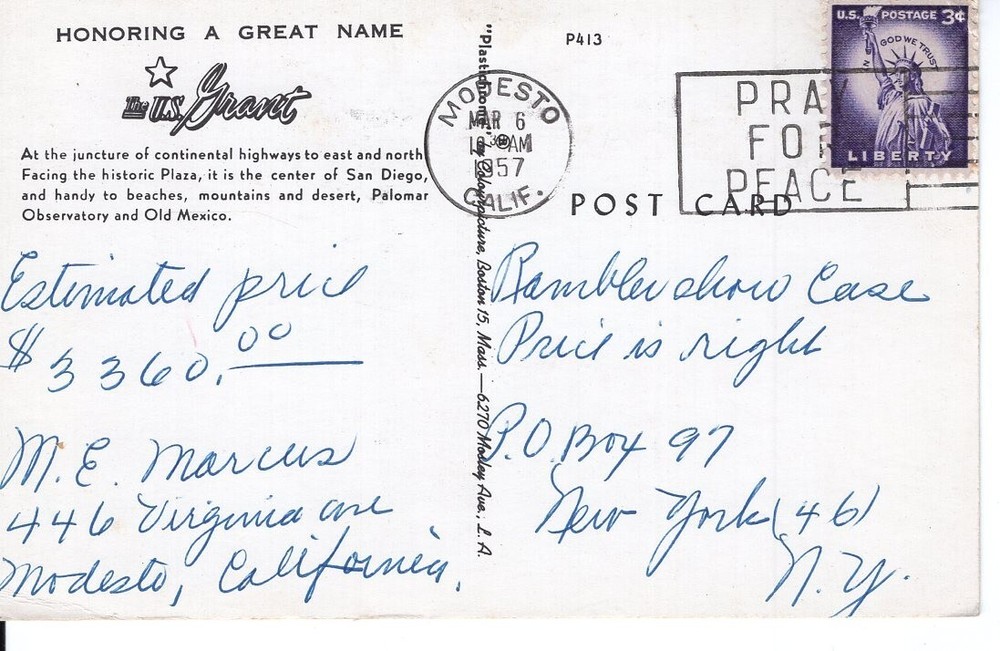 HONORING A GREAT NAME
The U.S. Grant
At the juncture of continental highways to east and north.
Facing the historic Plaza, it is the center of San Diego,
and handy to beaches, mountains and desert, Palomar
Observatory and Old Mexico.
Estimated price
$3360.00
M. E. Marcus
446 Virginia ave
Modesto, California.
"Plastichrome" by Colourpicture, Boston 15, Mass. — 6270 Mosley Ave., L. A.
P413
MODESTO
MAR 6
AM
1957
CALIF.
PRAY
FOR
PEACE
U.S. POSTAGE 3¢
IN GOD WE TRUST
LIBERTY
POST CARD
Rambler show Case
Price is right
P.O. Box 97
New York (46)
N.Y.